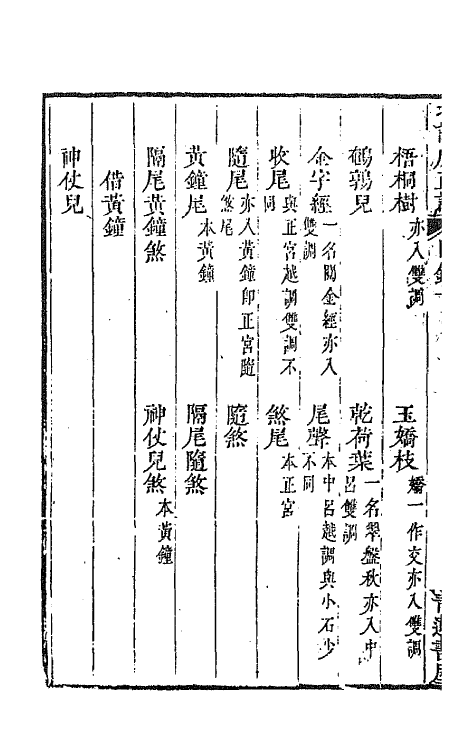 梧桐樹亦入雙調 玉嬌枝嬌一作交亦入雙調
鵪鶉兒 乾荷葉一名翠盤秋亦入中呂雙調
金字經一名閱金經亦入雙調 尾聲本中呂越調與小石少不同
收尾與正宮越調雙調不同 煞尾本正宮
隨尾亦入黃鐘即正宮隨煞尾 隨煞
黃鐘尾本黃鐘 隔尾隨煞
隔尾黃鐘煞 神仗兒煞本黃鐘
借黃鐘
神仗兒